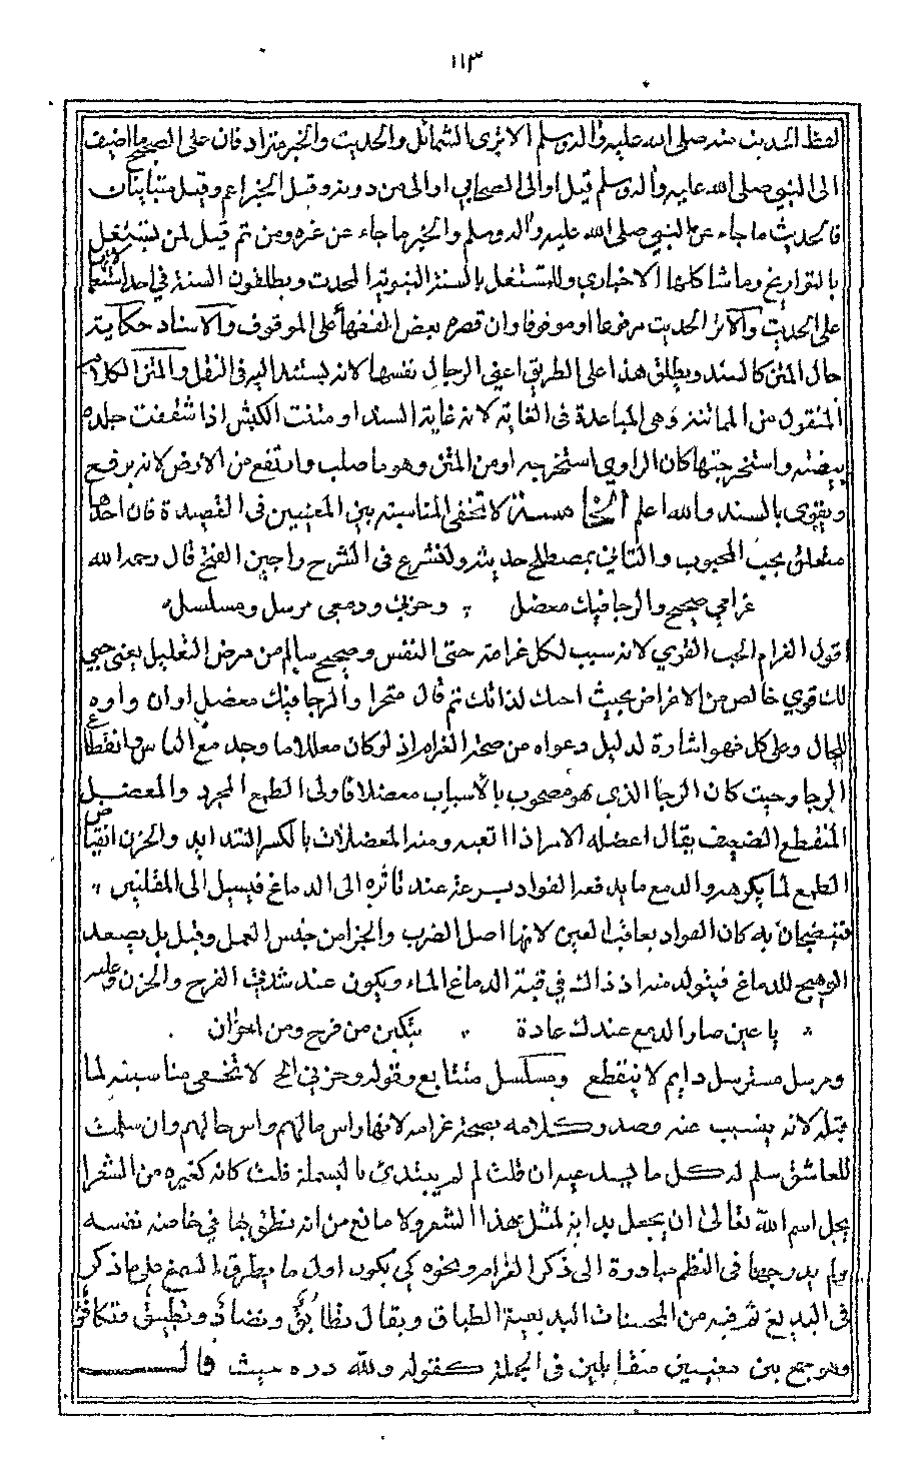 ١١٣
لفظ الحديث عنه صلى الله عليه وآله وسلم الا ترى الشمائل والحديث والخبر مترادفان على الصحيح ما اضيف
الى النبي صلى الله عليه وآله وسلم قيل او الى الصحابي او الى من دونه وقيل الخبر اعم وقيل متباينان
فالحديث ما جاء عن النبي صلى الله عليه وآله وسلم والخبر ما جاء عن غيره ومن ثم قيل لمن يشتغل
بالتواريخ وما شاكلها الاخباري وللمشتغل بالسنة النبوية المحدث ويطلقون السنة في احد
على الحديث والاثر الحديث مرفوعا او موقوفا وان قصره بعض الفقهاء على الموقوف والاسناد حكاية
حال المتن كالسند ويطلق هذا على الطريق اعني الرجال نفسها لانه يستند اليه في النقل والمتن الكلام
المنقول من المماتنة وهي المباعدة في الغاية لانه غاية السند او متنت الكبش اذا شققت جلدة
بيضته واستخرجتها كان الراوي استخرجه او من المتن وهو ما صلب وارتفع من الارض لانه يرفع
ويقوي بالسند والله اعلم لا تخفى المناسبة بين المعنيين في القصيدة فان احدهما
متعلق بحب المحبوب والثاني بمصطلح حديثه ولنشرع في الشرح راجين الفتح قال رحمه الله
غرامي صحيح والرجا فيك معضل وحزني ودمعي مرسل ومسلسل
اقول الغرام الحب القوي لانه سبب لكل غرامة حتى النفس وصحيح سالم من مرض التعليل يعني حبي
لك قوي خالص من الاغراض بحيث احبك لذاتك ثم قال متحرا والرجا فيك معضل اوان واوه
للحال وعلى كل فهو اشارة لدليل دعواه من صحة الغرام اذ لو كان معللا ما وجد مع الياس وانقطاع
الرجا وحيث كان الرجا الذي هو مصحوب بالاسباب معضلا فاولى الطمع المجرد والمعضل
المنقطع الضعيف يقال اعضله الامر اذا اتعبه ومنه المعضلات بالكسر الشدايد والحزن انقباض
الطبع لما يكرهه والدمع ما يدفعه الفواد بسرعة عند تاثره الى الدماغ فيسيل الى المقلتين
فتنضحان به كان الفواد يعاقب العين لانها اصل الضرب والجزا من جنس العمل وقيل بل يصعد
الوهيج للدماغ فيتولد منه اذ ذاك في قبة الدماغ الماء ويكون عند شدة الفرح والحزن وعليه
يا عين صار الدمع عندك عادة تبكين من فرح ومن احزان
ومرسل مسترسل دايم لا ينقطع ومسلسل متتابع وقوله وحزني الخ لا تخفى مناسبته لما
قبله لانه يتسبب عنه وصد وكلامه بصحة غرامه لانها راس مالهم واس حالهم وان سلمت
للعاشق سلم له كل ما يد عيه ان قلت لم لم يبتدئ بالبسملة قلت كانه كغيره من الشعرا
يجل اسم الله تعالى ان يجعل بداية لمثل هذا الشعر ولا مانع من انه نطق بها في خاصة نفسه
ولم يدرجها في النظم مبادرة الى ذكر الغرام ونحوه كي يكون اول ما يطرق السمع على ما ذكر
في البديع ثم فيه من المحسنات البديعية الطباق ويقال تطابق وتضاد وتطبيق وتكافؤ
وهو جمع بين معنيين متقابلين في الجملة كقوله ولله دره حيث قال